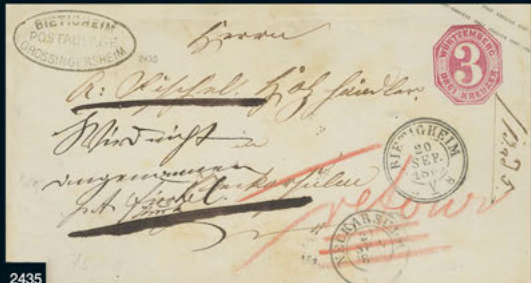 BIETIGHEIM
POSTABLAGE
GROSSINGERSHEIM
WÜRTTEMBERG
3
DREI KREUZER
Herrn
A: Fischel. Holzhändler
in
Wird nicht
angenommen
BIETIGHEIM
20
SEP.
Neckarsulm
retour
NECKARSULM
2435